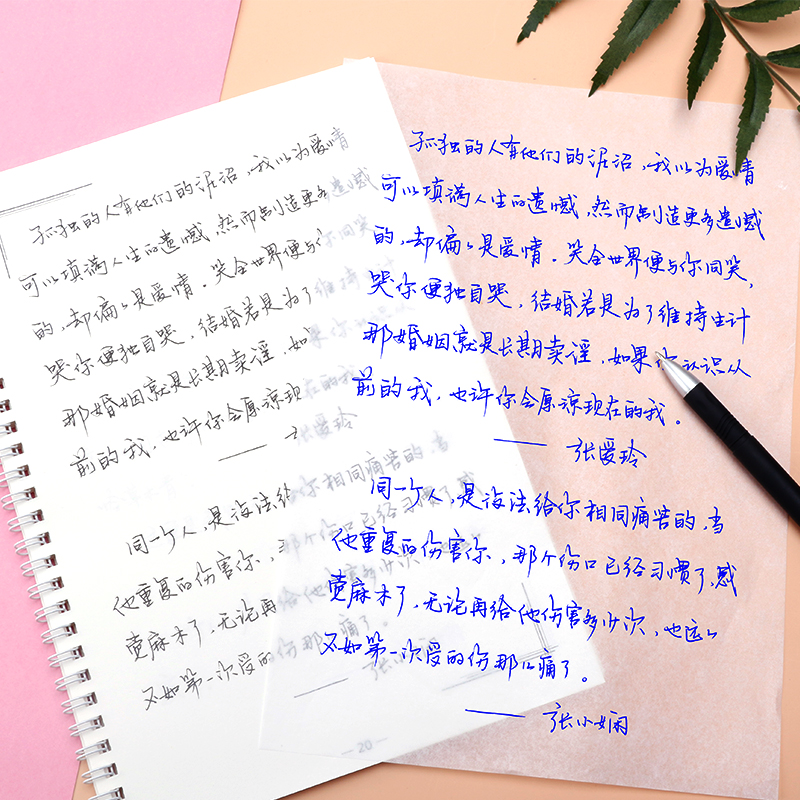 孤独的人有他们的泥沼，我以为爱情
可以填满人生的遗憾，然而制造更多遗憾
的，却偏々是爱情。笑全世界便与你同笑
哭你便独自哭，结婚若是为了维持生计
那婚姻就是长期卖淫，如
前的我，也许你会原谅现在的我
——张爱玲
同一个人，是没法给你相同痛苦的，当
他重复的伤害你，那个伤口已经习惯了，感
觉麻木了，无论再给他伤害多少次
不如第一次受的伤那么痛了。
——张小娴
— 20 —
孤独的人有他们的泥沼，我以为爱情
可以填满人生的遗憾，然而制造更多遗憾
的，却偏々是爱情。笑全世界便与你同笑，
哭你便独自哭，结婚若是为了维持生计
那婚姻就是长期卖淫，如果你认识从
前的我，也许你会原谅现在的我。
——张爱玲
同一个人，是没法给你相同痛苦的，当
他重复的伤害你，那个伤口已经习惯了，感
觉麻木了，无论再给他伤害多少次，也远々
不如第一次受的伤那么痛了。
——张小娴